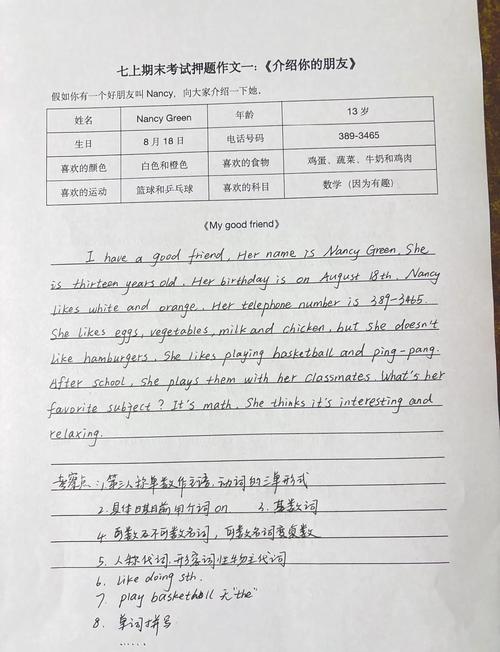 七上期末考试押题作文一:《介绍你的朋友》
假如你有一个好朋友叫 Nancy, 向大家介绍一下她。
姓名 Nancy Green 年龄 13 岁
生日 8 月 18 日 电话号码 389-3465
喜欢的颜色 白色和橙色 喜欢的食物 鸡蛋、蔬菜、牛奶和鸡肉
喜欢的运动 篮球和乒乓球 喜欢的科目 数学（因为有趣）
《My good friend》
I have a good friend, Her name is Nancy Green. She
is thirteen years old. Her birthday is on August 18th. Nancy
likes white and orange. Her telephone number is 389-3465.
She likes eggs, vegetables, milk and chicken, but she doesn't
like hamburgers. She likes playing basketball and ping-pang.
After school, she plays them with her classmates. What's her
favorite subject? It's math. She thinks it's interesting and
relaxing.
考察点:1, 第三人称单数作主语, 动词的三单形式
2. 具体日期前用介词 on 3. 基数词
4. 可数及不可数名词, 可数名词变复数
5. 人称代词. 形容词性物主代词
6. like doing sth.
7. play basketball 无"the"
8. 单词拼写
......